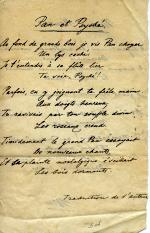 Pan et Psyché.
Au fond de grands bois je vis Pan
Un lys caché,
Je t'entendis à sa flûte
Ta voix, Psyché!
Parfois, en y joignant ta frêle main
Aux doigts heureux,
Tu ravivais par ton souple
Les roseaux creux
Timidement le grand Pan essayait
De nouveaux chants
Et la plainte nostalgique s'
Les bois dormants.
Traduction de l'auteur